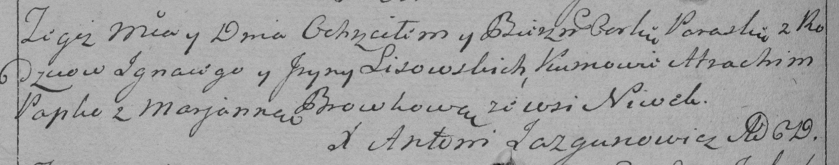 Tegoż Mca y Dnia Ochrzciłem y Bierzm Corkę Paraskę z Ro
dzicow Ignacego y Jryny Lisowskich, Kumowie Atrachim
Papko z Marjanną Browkową ze wsi Niwek.
X Antoni Jazgunowicz